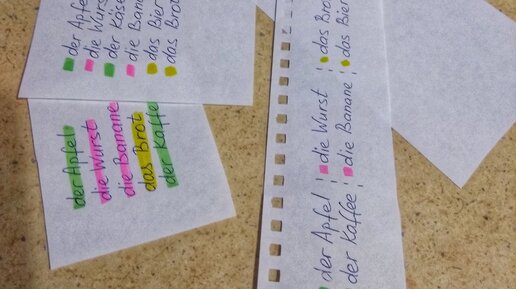 der Apfel
die Wurst
der Käse
die Banane
das Bier
das Brot
der Apfel
die Wurst
die Banane
das Brot
der Kaffee
der Apfel ¦ die Wurst ¦ das Brot
der Kaffee ¦ die Banane ¦ das Bier